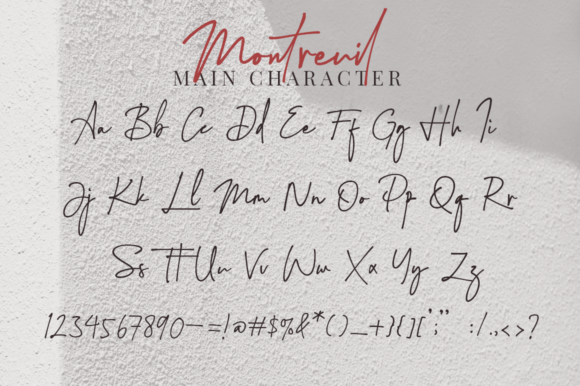 Montreuil
MAIN CHARACTER
Aa Bb Cc Dd Ee Ff Gg Hh Ii
Jj Kk Ll Mm Nn Oo Pp Qq Rr
Ss Tt Uu Vv Ww Xx Yy Zz
1234567890-=!@#$%&*()_+}{][';" :/.,<>?